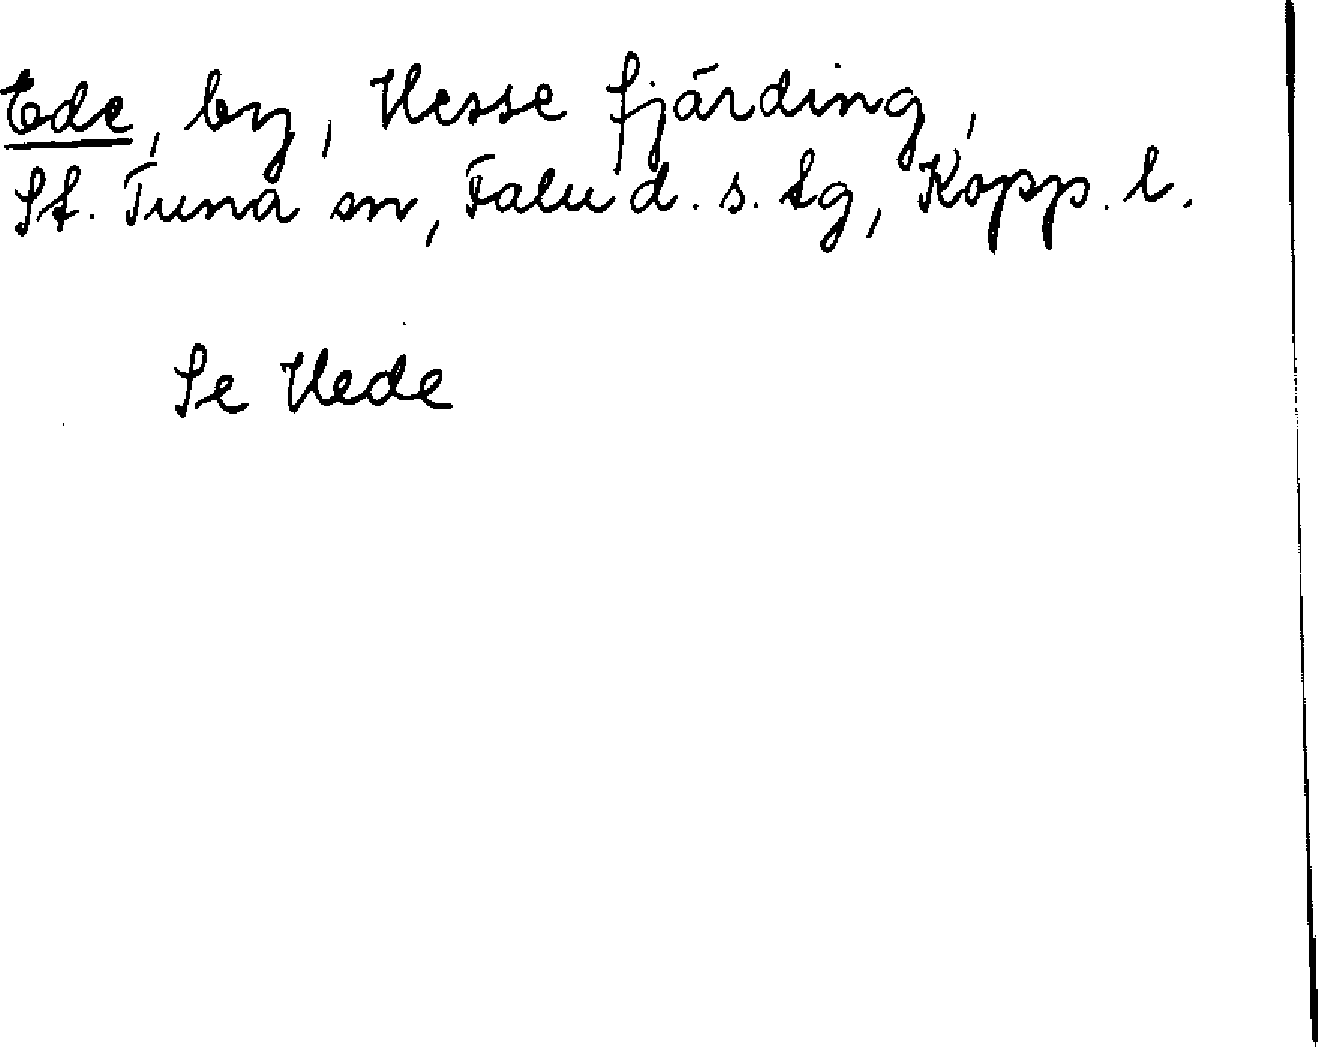 Ede, by, Hesse fjärding,
St. Tuna sn, Falu d. s. tg, Kopp. l.
Se Hede